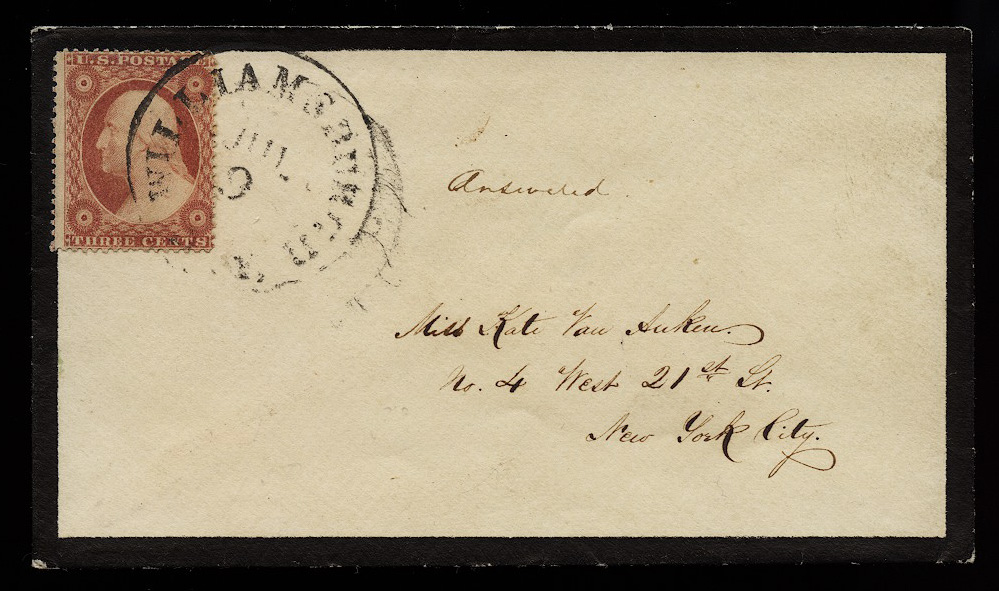 U.S. POSTAGE
THREE CENTS
WILLIAMSBURGH
JUL
Answered
Miss Kate Van Auken.
No. 4 West 21st St.
New York City.